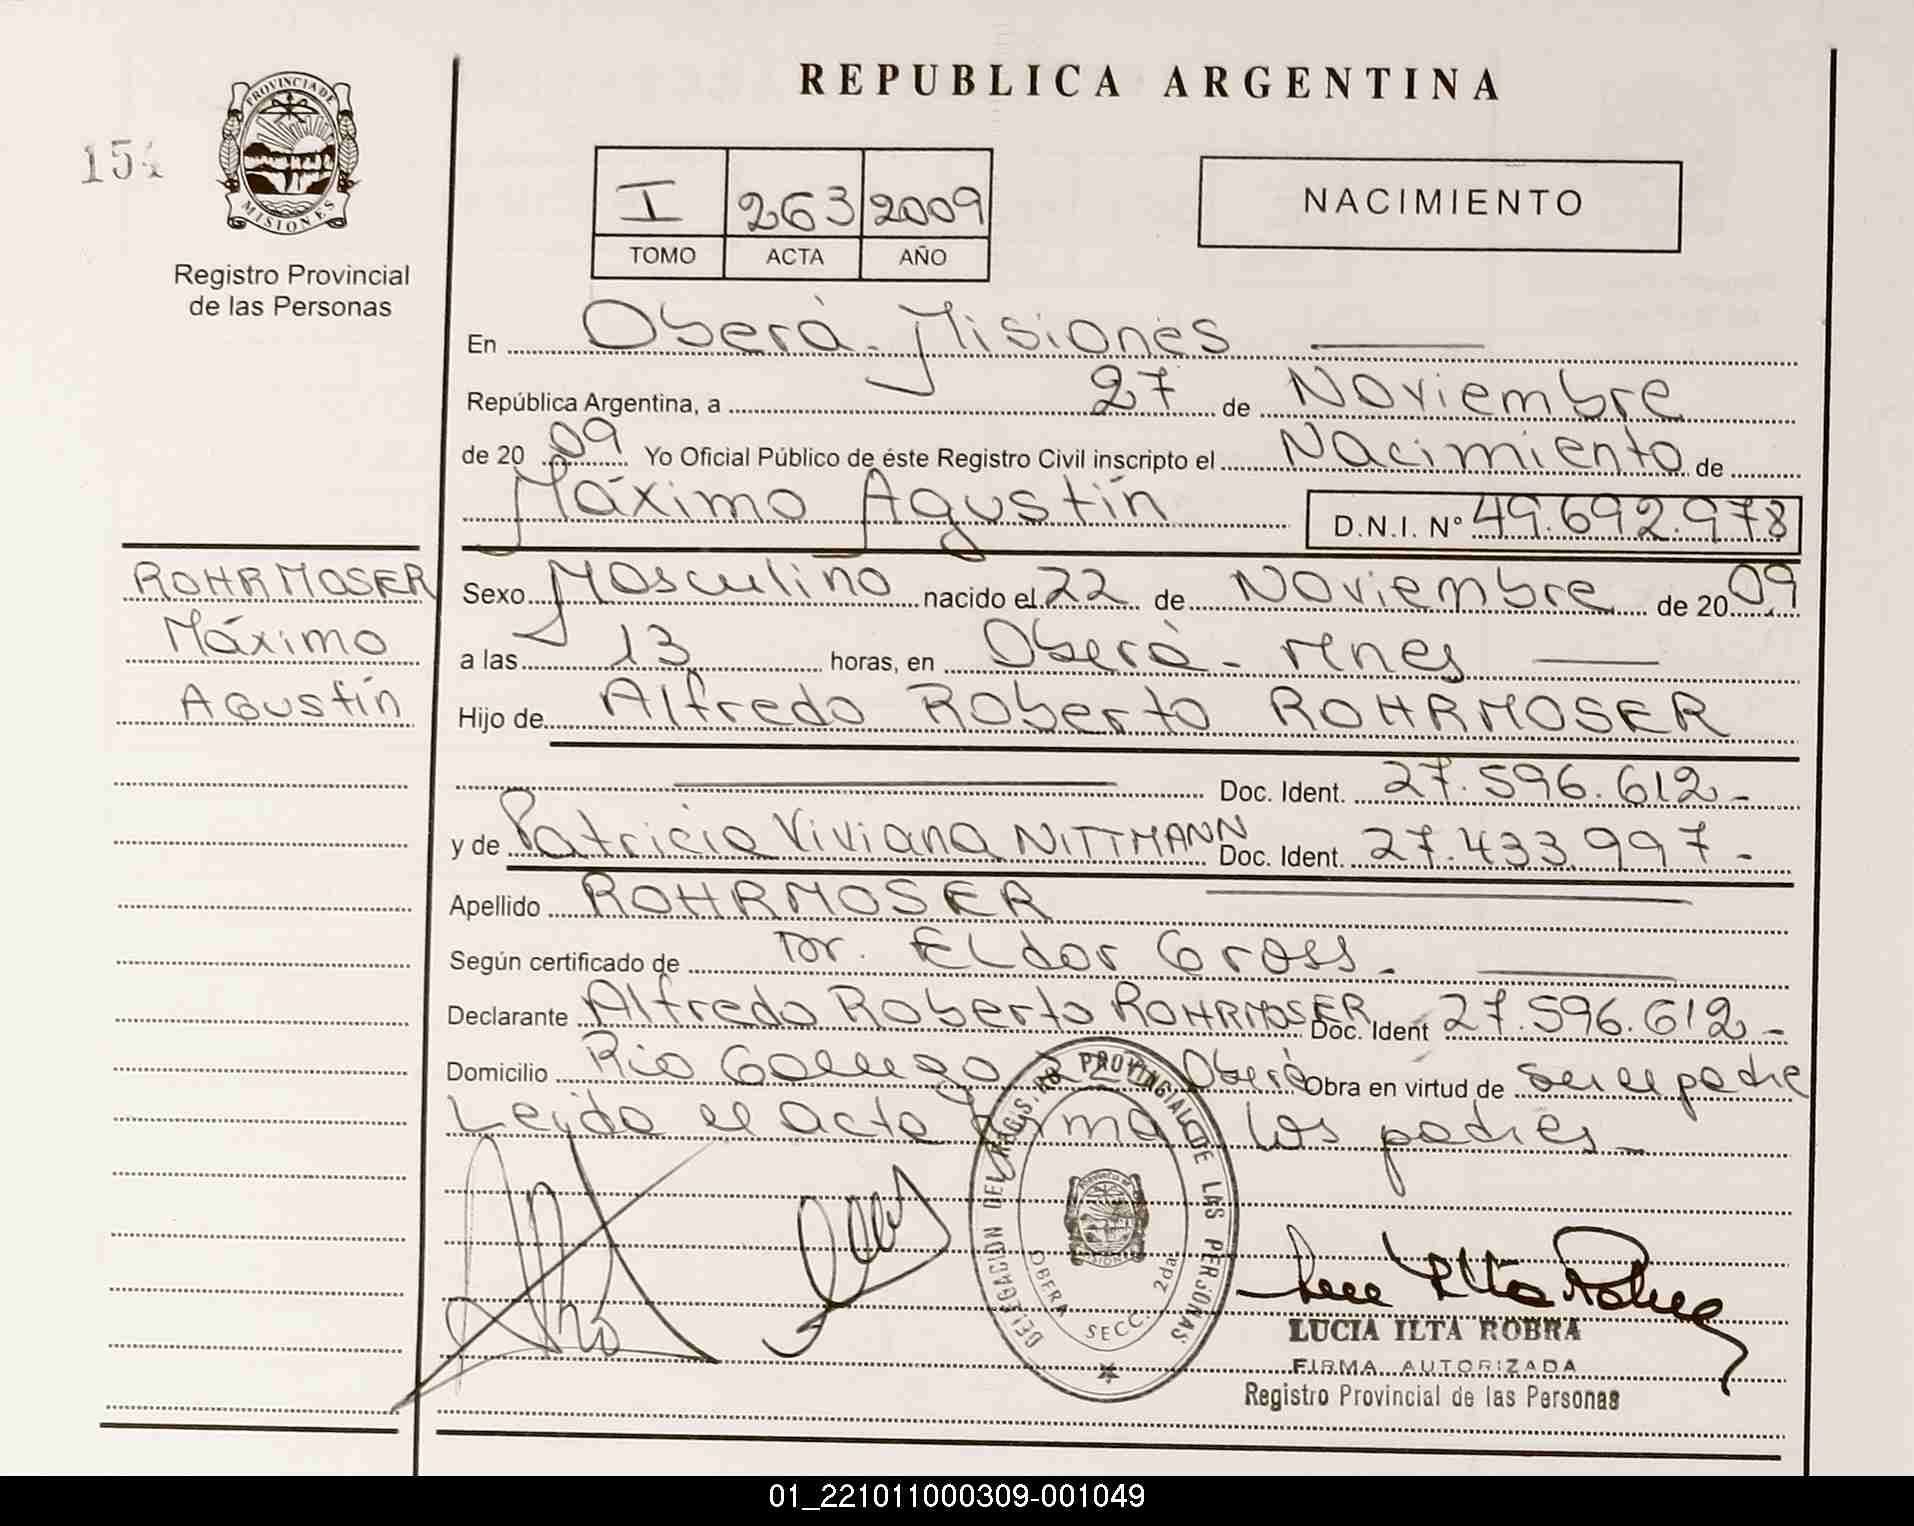 REPUBLICA ARGENTINA
PROVINCIA DE
MISIONES
154
Registro Provincial
de las Personas
I 263 2009
TOMO ACTA AÑO
NACIMIENTO
En Oberá - Misiones
República Argentina, a 27 de Noviembre
de 20 09 Yo Oficial Público de éste Registro Civil inscripto el Nacimiento de
Máximo Agustín D.N.I. Nº 49.692.978
ROHRMOSER
Máximo
Agustín
Sexo Masculino nacido el 22 de Noviembre de 20 09
a las 13 horas, en Oberá - Mnes
Hijo de Alfredo Roberto ROHRMOSER
Doc. Ident. 27.596.612-
y de Patricia Viviana NITTMANN Doc. Ident. 27.433.997-
Apellido ROHRMOSER
Según certificado de Dr. Eldor Gross.
Declarante Alfredo Roberto ROHRMOSER Doc. Ident 27.596.612-
Domicilio Rio Oberá Obra en virtud de ser el padre
Leída el acta firman los padres-
DELEGACION DEL REGISTRO PROVINCIAL DE LAS PERSONAS
OBERA SECC. 2da
LUCIA ILTA ROBRA
FIRMA AUTORIZADA
Registro Provincial de las Personas
01_221011000309-001049